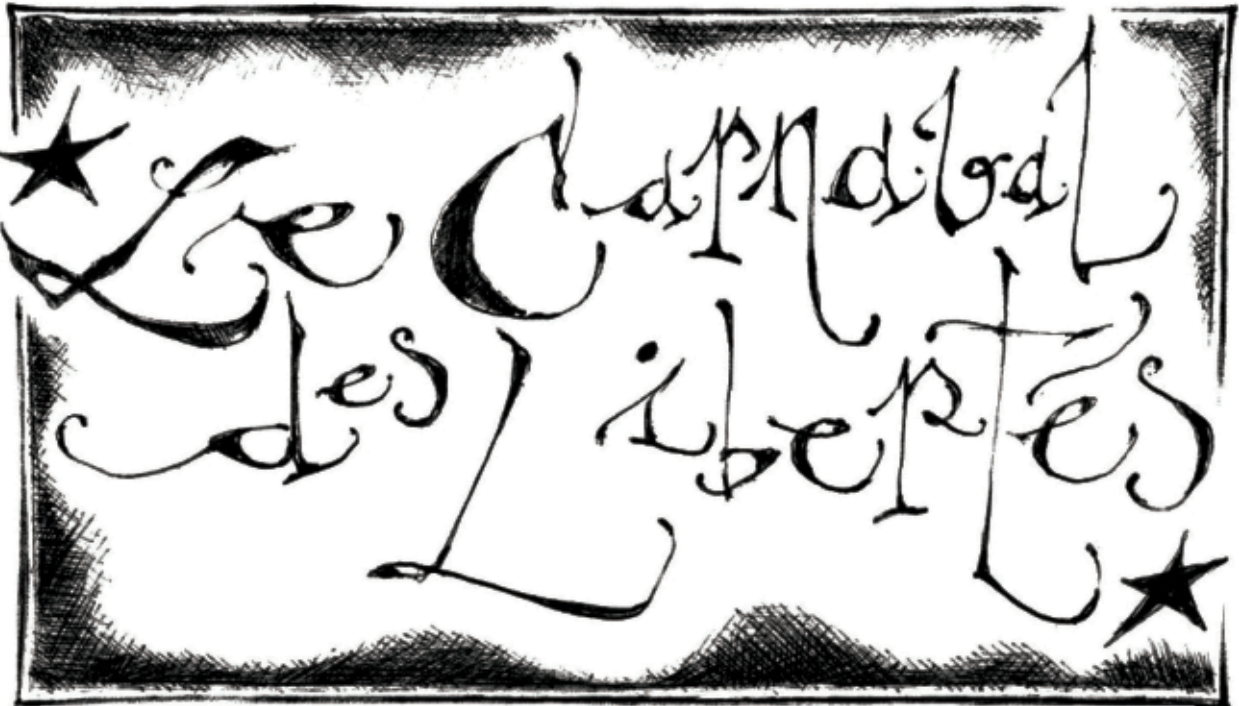 Le Carnaval
des Libertés